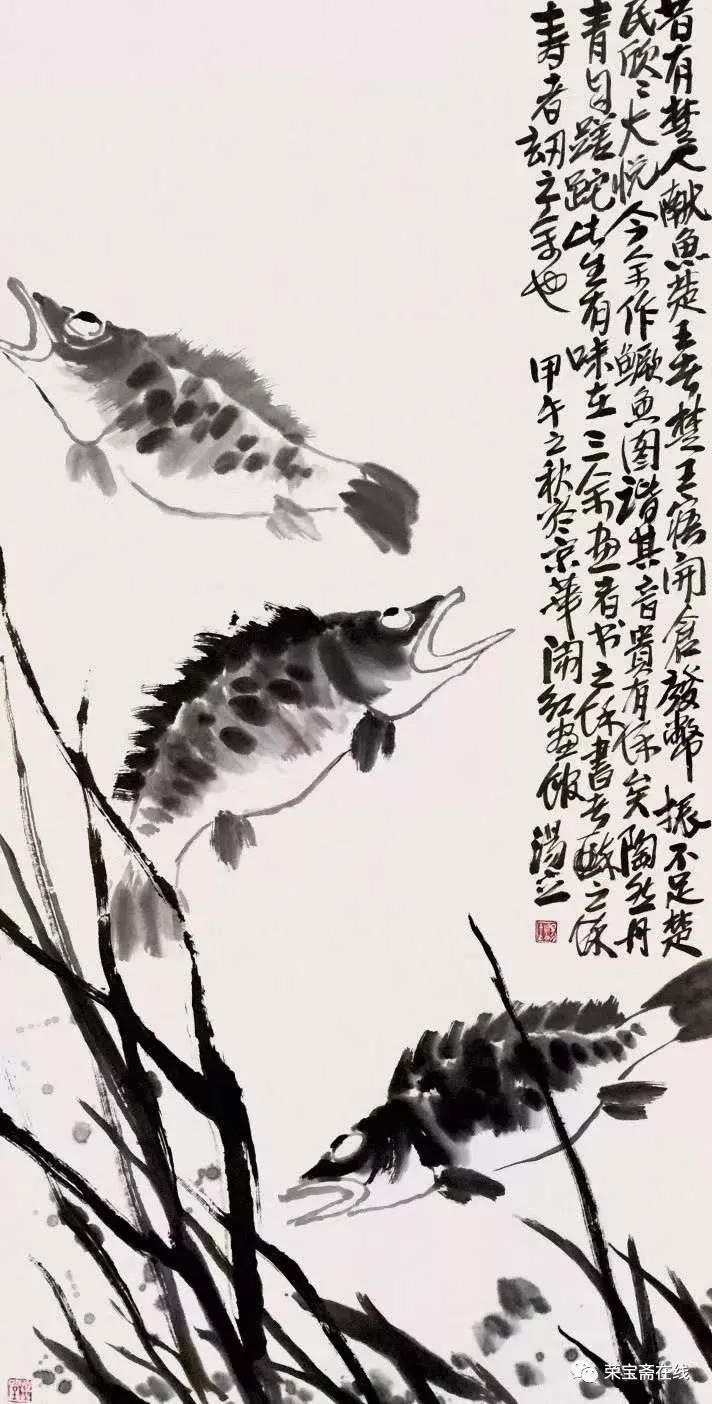 昔有楚人献鱼楚王者楚王悟开仓发币振不足楚
民欣〻大悦今余作鳜鱼图谐其音贵有余矣陶然丹
青自蹉跎此生有味在三余画者书之余书者酥之余
寿者劫之余也
甲午之秋于京华闹红画馆 汤立
荣宝斋在线